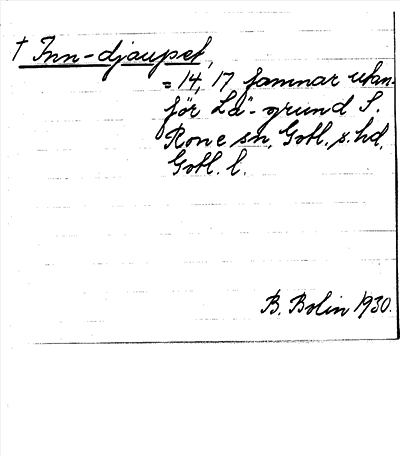 † Inn-djaupet,
= 14, 17 famnar utan-
för Lä-grund S.
Rone sn, Gotl. s. hd,
Gotl. l.
B. Bolin 1930.